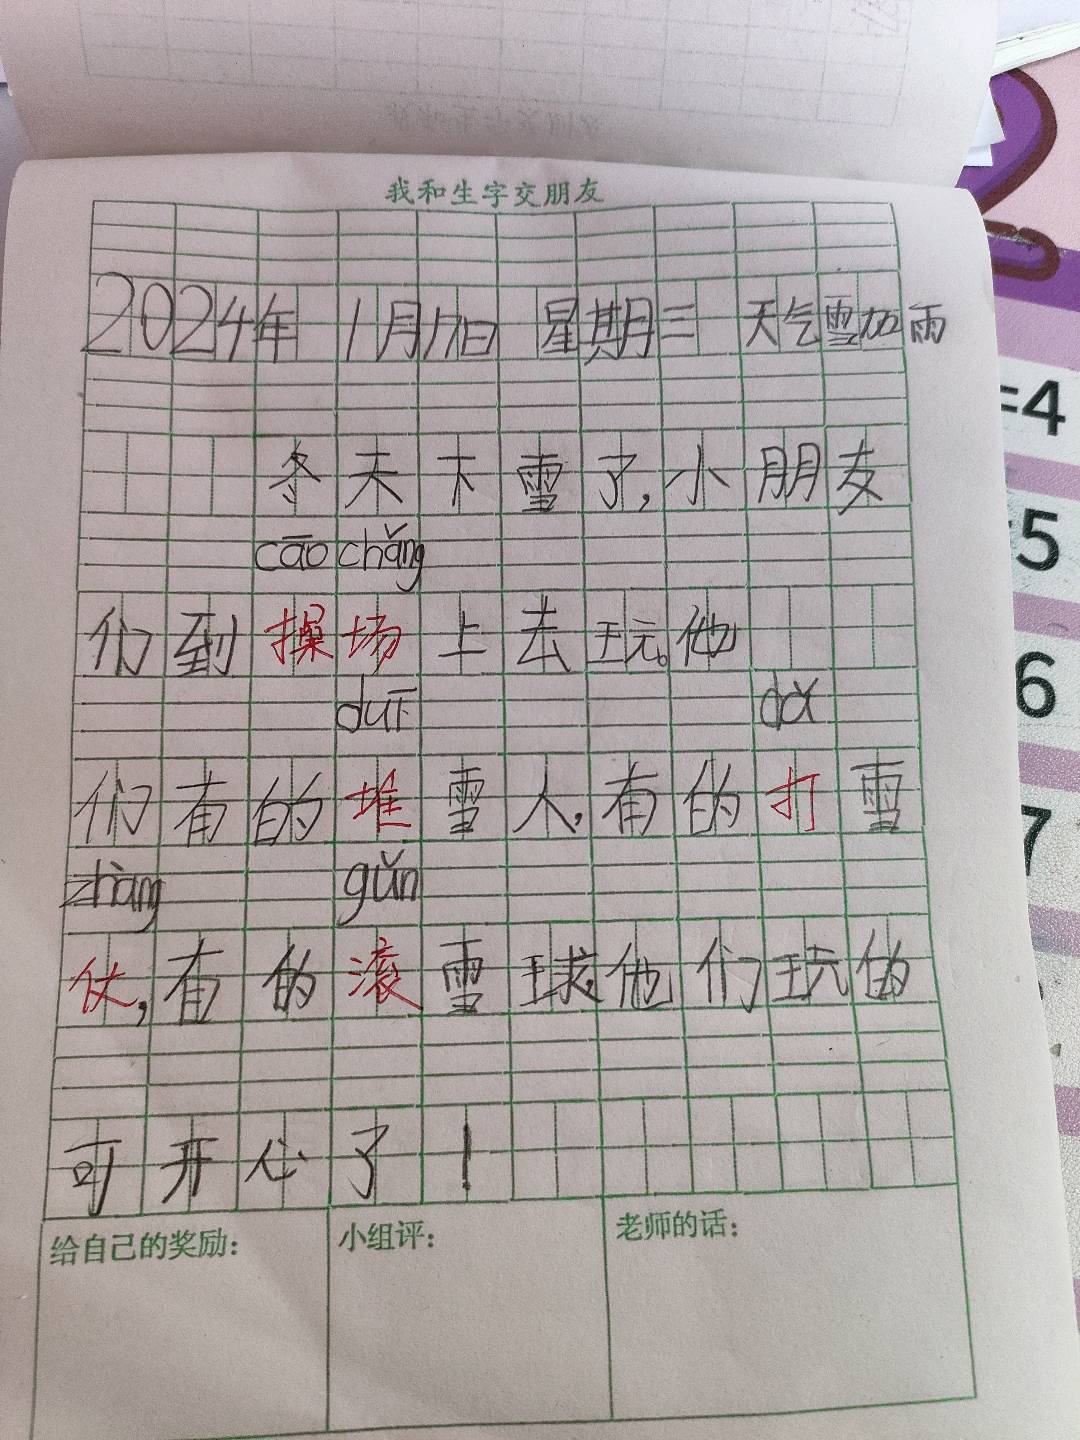 我和生字交朋友
2024年 1月17日 星期三 天气雪加雨
冬天下雪了,小朋友
cāo chǎng
们到操场上去玩。他
duī dǎ
们有的堆雪人,有的打雪
zhàng gǔn
仗,有的滚雪球,他们玩的
可开心了!
给自己的奖励:
小组评:
老师的话:
=4
5
6
7